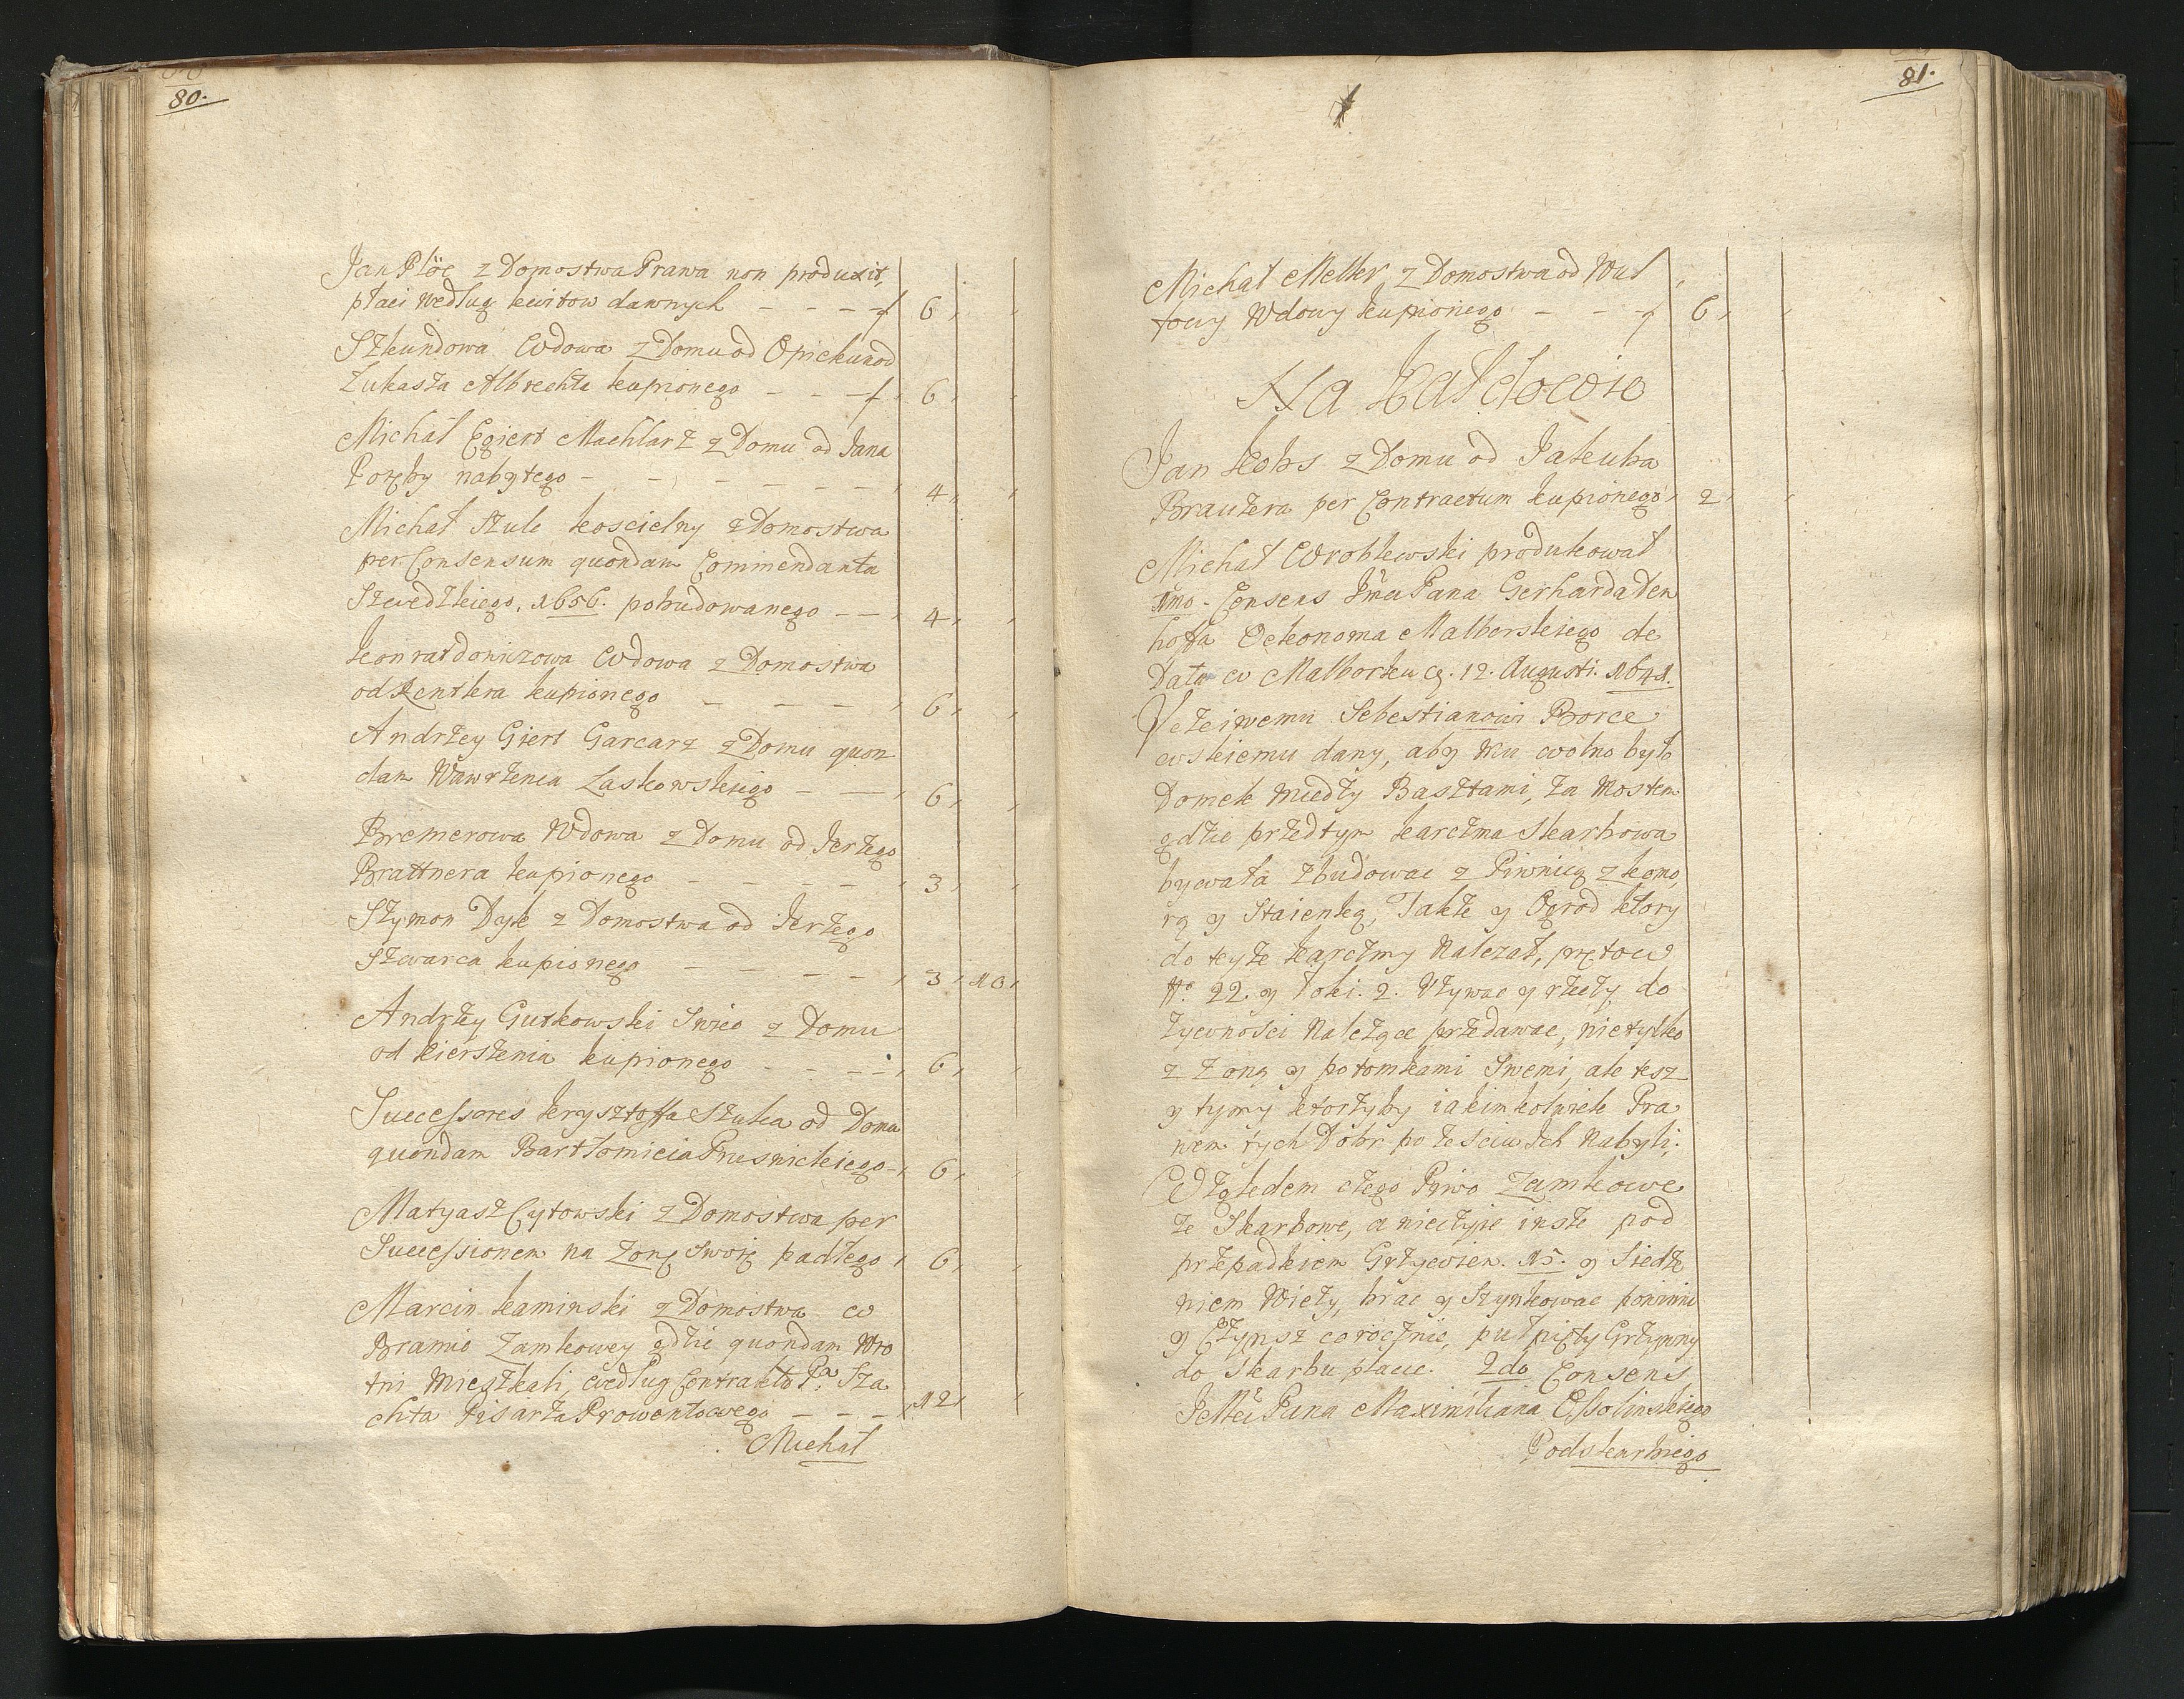 80.
Jan Plöc z Domostwa Prawa non produxit,
płaci według kwitow dawnych - - - f 6
Szkundowa Wdowa z Domu od Opiekunow
Łukasza Albrechta kupionego - - - f 6
Michał Egiert Machlarz z Domu od Jana
Poręby nabytego - - - - - - 4
Michał Szulc koscielny z Domostwa
per Consensum quondam Commendanta
Szwedzkiego, 1656. pobudowanego - - 4
Konratdoniczowa Wdowa z Domostwa
od Rentkra kupionego - - - - 6
Andrzey Giert Garcarz z Domu quon
dam Wawrzenca Laskowskiego - - 6
Bremerowa Wdowa z Domu od Jerzego
Brattnera kupionego - - - - - 3
Szymon Dyk z Domostwa od Jerzego
Szwarca kupionego - - - - - 3, 10
Andrzey Gutkowski Swiec z Domu
od Kierszenia kupionego - - - - 6
Successores krysztoffa Szulca od Domu
quondam Bartłomieia Prusnickiego - 6
Matyasz Cytowski z Domostwa per
Successionem na Zonę Swoię padłego 6
Marcin kaminski z Domostwa w
Bramie Zamkowey gdzie quondam Wro
tni Mieszkali, według Contraktu Pa. Sza
chta Pisarza Prowentowego - - - 12
Michał
81.
Michał Meller z Domostwa od Wul
fowy Wdowy kupionego - - f 6
Na Kałdowie
Jan Kobs z Domu od Jakuba
Brauzera per Contractum kupionego 2
Michał Wroblewski produkował
1mo. Consens Jmci Pana Gerharda Den
hoffa Oekonoma Malborskiego de
Data w Malborku 12. Augusti. 1641.
Vczciwemu Sebestianowi Borce
wskiemu dany, aby Mu wolno było
Domek miedzy Basztami, za Mostem
gdzie przedtym karczma Skarbowa
bywała zbudowac z Piwnicą z komo
rą y Staienką, Takze y Ogrod ktory
do teyze karczmy Nalezał, prętow
No. 22. y łoki. 2. Vzywac y rzeczy do
zywnosci Nalezące przedawac, nietylko
z Zoną y potomkami Swemi, ale tesz
y tymy ktorzyby iakimkolwiek Pra
wem tych Dobr po zesciu Ich Nabyli;
Wzgledem czego Piwo Zamkowe
ze Skarbowe, a nieczyie insze pod
przepadkiem Grzywien. 15. y Siedze
niem Wiezy, brac y Szynkowac powinni
y Czynsz corocznie, puł pięty Grzywny
do Skarbu płacic. 2do Consens
JeMci Pana Maximiliana Ossolinskiego
Podskarbiego